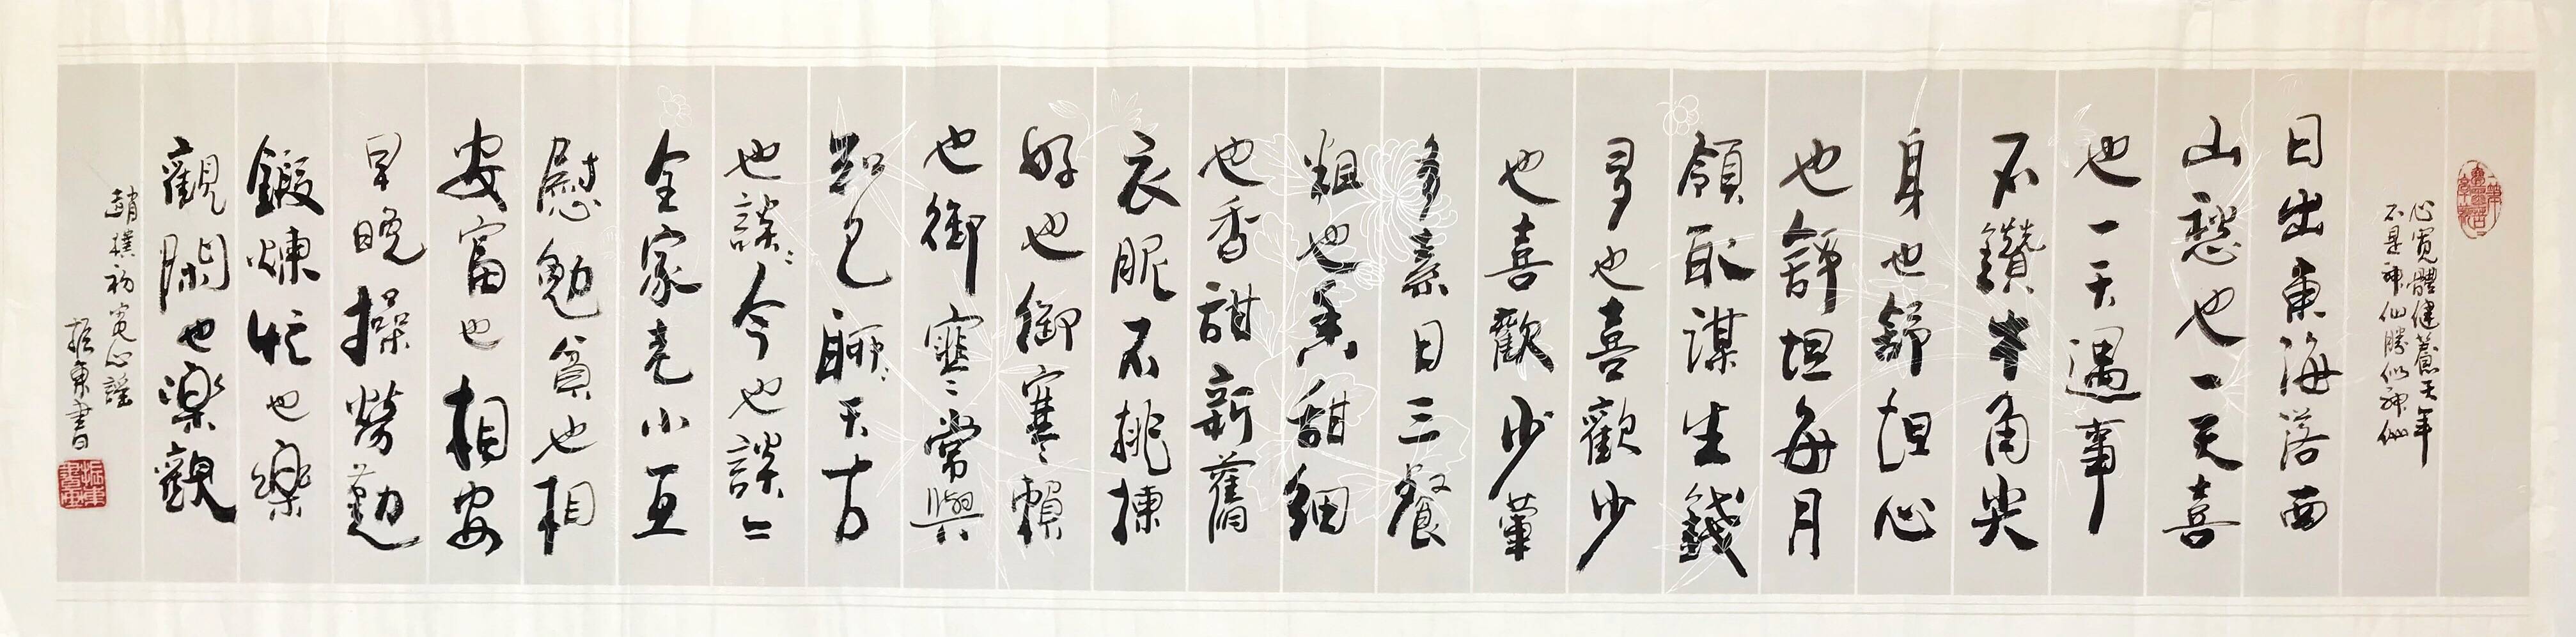 心寬體健養天年
不是神仙勝似神仙
日出東海落西
山愁也一天喜
也一天遇事
不鑽牛角尖
身也舒坦心
也舒坦每月
領取謀生錢
多也喜歡少
也喜歡少葷
多素日三餐
粗也香甜細
也香甜新舊
衣服不挑揀
好也御寒賴
也御寒常與
知己聊々天古
也談々今也談々
全家老小互
慰勉貧也相
安富也相安
早晚操勞勤
鍛煉忙也樂
觀閑也樂觀
趙樸初寬心謠
振東書